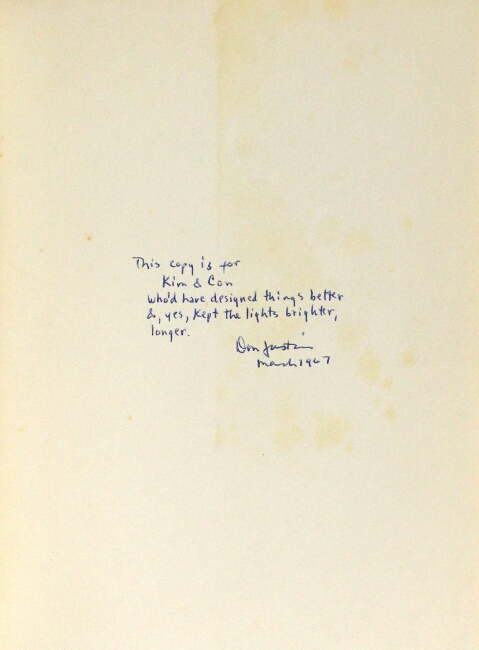 This copy is for
Kim & Con
who'd have designed things better
&, yes, kept the lights brighter,
longer.
Don Justice
March 1967